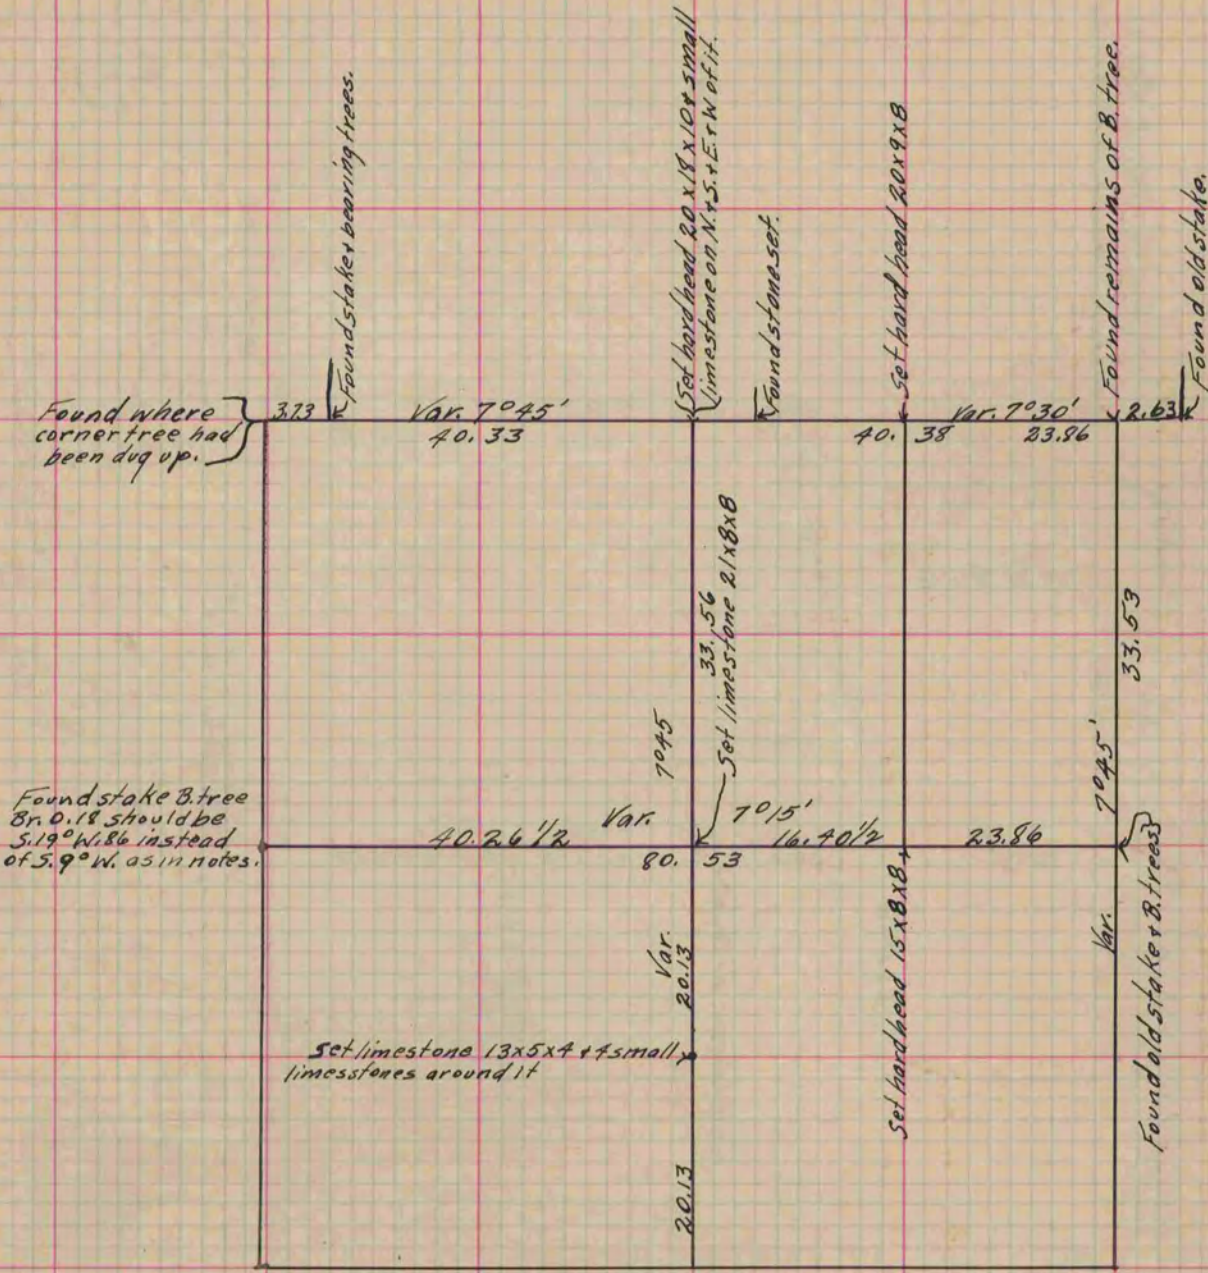 Found stake & bearing trees.
Set hardhead 20 x 18 x 10 & small
limestone on N. & S. & E. & W of it.
Found stone set.
Set hard head 20x9x8
Found remains of B. tree.
Found old stake.
Found where
corner tree had
been dug up.
3.73
Var. 7°45'
40.33
Var. 7°30'
2.63
40. 38
23.86
33.56
Set limestone 21x8x8
33.53
7°45
7°45'
Found stake B. tree
Br. 0.18 should be
S.19°W.86 instead
of S.9°W. as in notes.
40.26 1/2
Var. 7°15'
16.40 1/2
23.86
80. 53
Var.
20.13
Set hard head 15x8x8
Var.
Found old stake & B. trees
Set limestone 13x5x4 & 4 small
limesstones around it
20.13